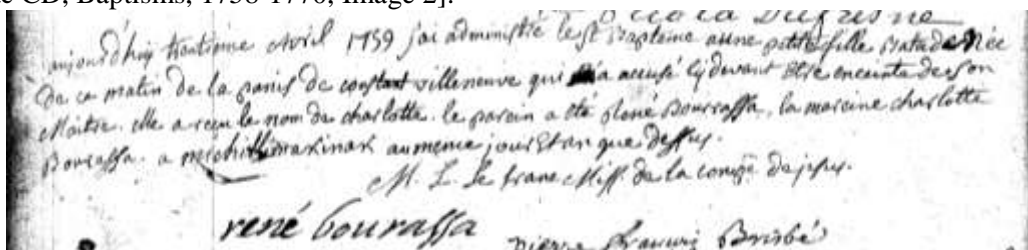 e CD, Baptisms, 1758-1770, Image 2].
Dufresne
aujourdhuy trentieme avril 1759 j'ai administré le st Bapteme a une petite fille batarde Née
de ce matin de la panis de constant villeneuve qui a accusé cy devant Etre enceinte de son
Maitre. elle a reçu le nom de charlotte. le parein a été René Bourrassa. la mareine charlotte
Bourassa. a michillimakinak au meme jour Et an que dessus.
M. L. le franc Miss. de la comp. de jesus.
rené bourassa
pierre